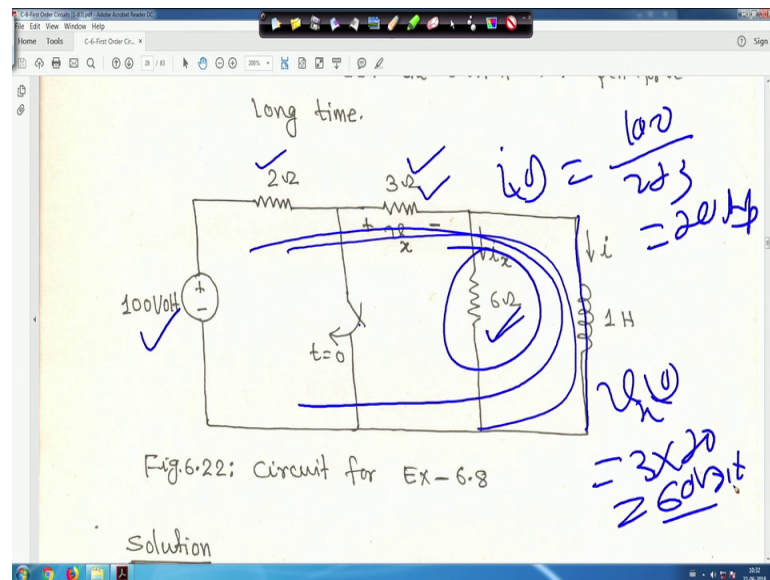 C-6-First Order Circuits (1-83).pdf - Adobe Acrobat Reader DC
File Edit View Window Help
Home Tools C-6-First Order Cir... × Sign
28 / 83 200%
long time.
2Ω
3Ω
+ vx -
ix
i
100Volt
+
-
t=0
6Ω
1 H
i(0) = 100 / 2+3
= 20 Amp
vx(0)
= 3×20
= 60 Volt
Fig.6.22: Circuit for Ex-6.8
Solution
10:32